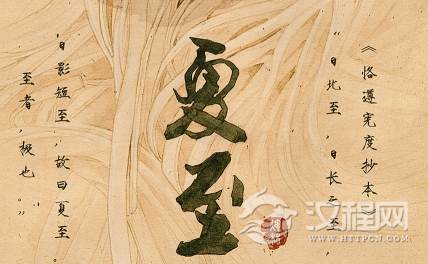 《恪遵宪度抄本》
"日北至，日长之至，
夏至
日影短至，故曰夏至。
至者，极也。"
汉程网
WWW.HTTPCN.COM